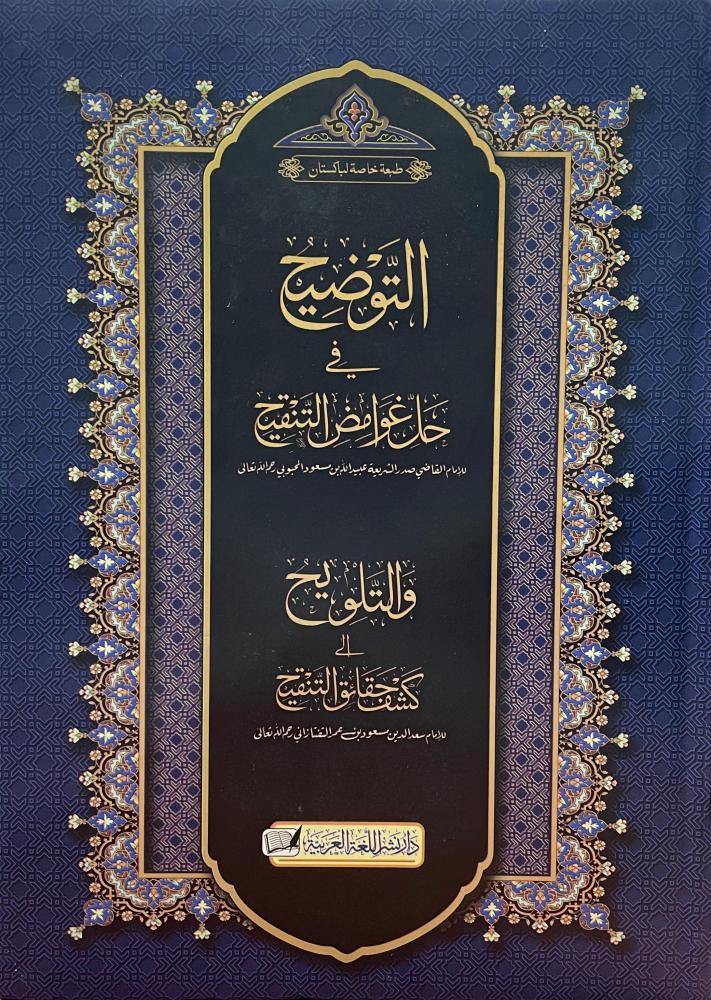 طبعة خاصة لباكستان
التَّوْضِيحُ
فِي
حَلِّ غَوَامِضِ التَّنْقِيحِ
للإمام القاضي صدر الشريعة عبيد الله بن مسعود المحبوبي رحمه الله تعالى
وَالتَّلْوِيحُ
إلى
كَشْفِ حَقَائِقِ التَّنْقِيحِ
للإمام سعد الدين مسعود بن عمر التفتازاني رحمه الله تعالى
دار نشر اللغة العربية